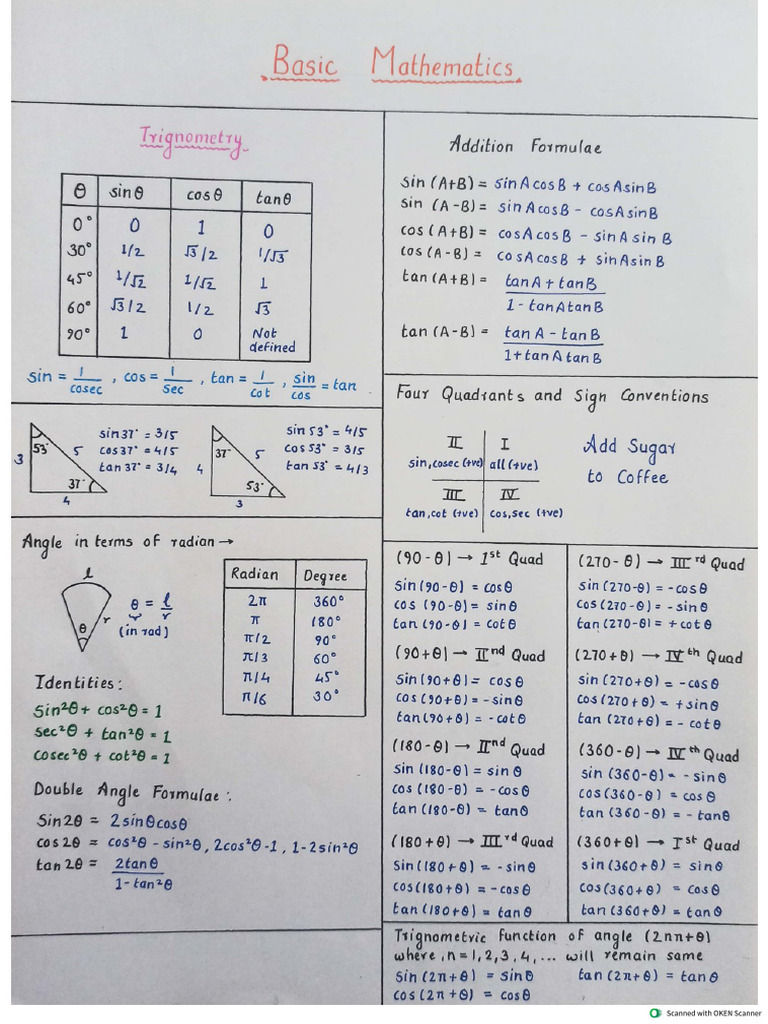 Basic Mathematics
Trignometry
θ sinθ cosθ tanθ
0° 0 1 0
30° 1/2 √3/2 1/√3
45° 1/√2 1/√2 1
60° √3/2 1/2 √3
90° 1 0 Not defined
sin = 1/cosec , cos = 1/sec , tan = 1/cot , sin/cos = tan
3 53° 5 37° 4
sin37° = 3/5
cos37° = 4/5
tan37° = 3/4
4 37° 5 53° 3
sin53° = 4/5
cos53° = 3/5
tan53° = 4/3
Angle in terms of radian →
l
θ r
θ = l/r
(in rad)
Radian Degree
2π 360°
π 180°
π/2 90°
π/3 60°
π/4 45°
π/6 30°
Identities:
sin²θ + cos²θ = 1
sec²θ + tan²θ = 1
cosec²θ + cot²θ = 1
Double Angle Formulae:
Sin2θ = 2sinθcosθ
cos2θ = cos²θ - sin²θ, 2cos²θ-1, 1-2sin²θ
tan2θ = 2tanθ
1-tan²θ
Addition Formulae
sin (A+B) = sinAcosB + cosAsinB
sin (A-B) = sinAcosB - cosAsinB
cos (A+B) = cosAcosB - sinAsinB
cos (A-B) = cosAcosB + sinAsinB
tan (A+B) = tanA + tanB
1-tanAtanB
tan (A-B) = tanA - tanB
1+tanAtanB
Four Quadrants and Sign Conventions
II I
sin,cosec (+ve) all (+ve)
III IV
tan,cot (+ve) cos,sec (+ve)
Add Sugar
to Coffee
(90-θ) → Ist Quad
Sin(90-θ) = cosθ
cos (90-θ) = sinθ
tan(90-θ) = cotθ
(90+θ) → IInd Quad
Sin(90+θ) = cosθ
cos(90+θ) = -sinθ
tan(90+θ) = -cotθ
(180-θ) → IInd Quad
Sin (180-θ) = sinθ
cos (180-θ) = -cosθ
tan (180-θ) = tanθ
(180+θ) → IIIrd Quad
Sin(180+θ) = -sinθ
cos(180+θ) = -cosθ
tan(180+θ) = tanθ
(270-θ) → IIIrd Quad
sin(270-θ) = -cosθ
cos(270-θ) = -sinθ
tan(270-θ) = +cotθ
(270+θ) → IVth Quad
sin (270+θ) = -cosθ
cos(270+θ) = +sinθ
tan (270+θ) = -cotθ
(360-θ) → IVth Quad
sin (360-θ) = -sinθ
cos(360-θ) = cosθ
tan(360-θ) = -tanθ
(360+θ) → Ist Quad
sin(360+θ) = sinθ
cos(360+θ) = cosθ
tan(360+θ) = tanθ
Trignometric function of angle (2nπ+θ)
where, n = 1,2,3,4,... will remain same
Sin (2π+θ) = sinθ tan (2π+θ) = tanθ
cos (2π+θ) = cosθ
Scanned with OKEN Scanner